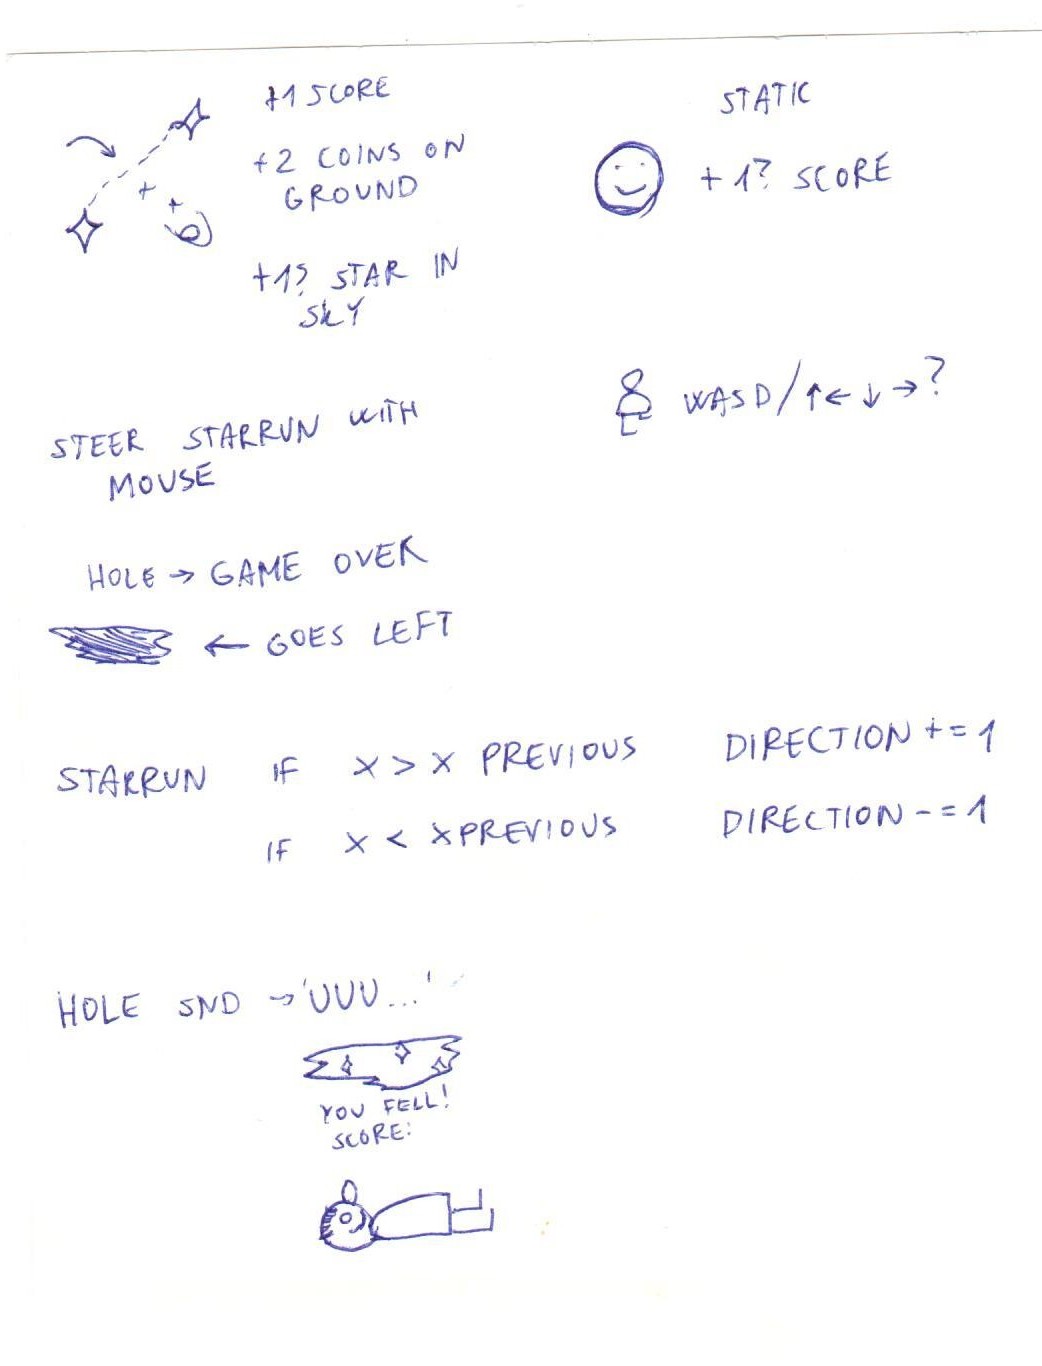 +1 SCORE
+2 COINS ON
GROUND
+1? STAR IN
SKY
STATIC
+ 1? SCORE
WASD/↑←↓→?
STEER STARRUN WITH
MOUSE
HOLE → GAME OVER
← GOES LEFT
STARRUN IF X > X PREVIOUS DIRECTION += 1
IF X < XPREVIOUS DIRECTION -= 1
HOLE SND → 'UUU...'
YOU FELL!
SCORE: